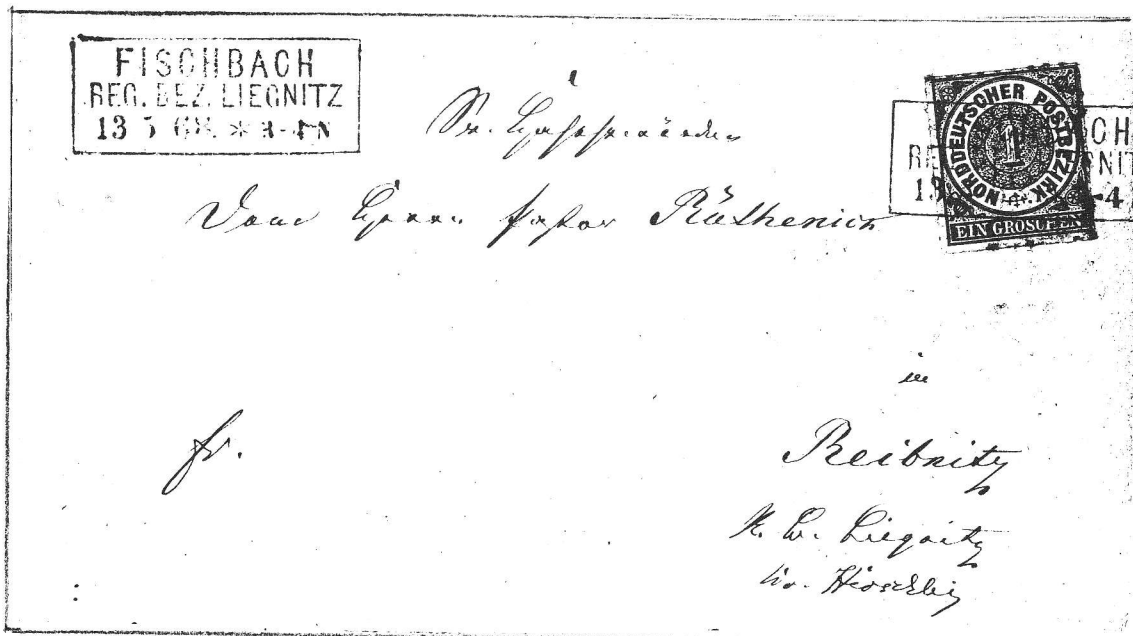 FISCHBACH
REG. BEZ. LIEGNITZ
13 5 68 * 3-4 N
Sr. Hochwürden
Dem Herrn Pastor Räthenich
NORDDEUTSCHER POSTBEZIRK
1
EIN GROSCHEN
CH
RE GNIT
13 -4
in
fr.
Reibnitz
Liegnitz
Hirschbg